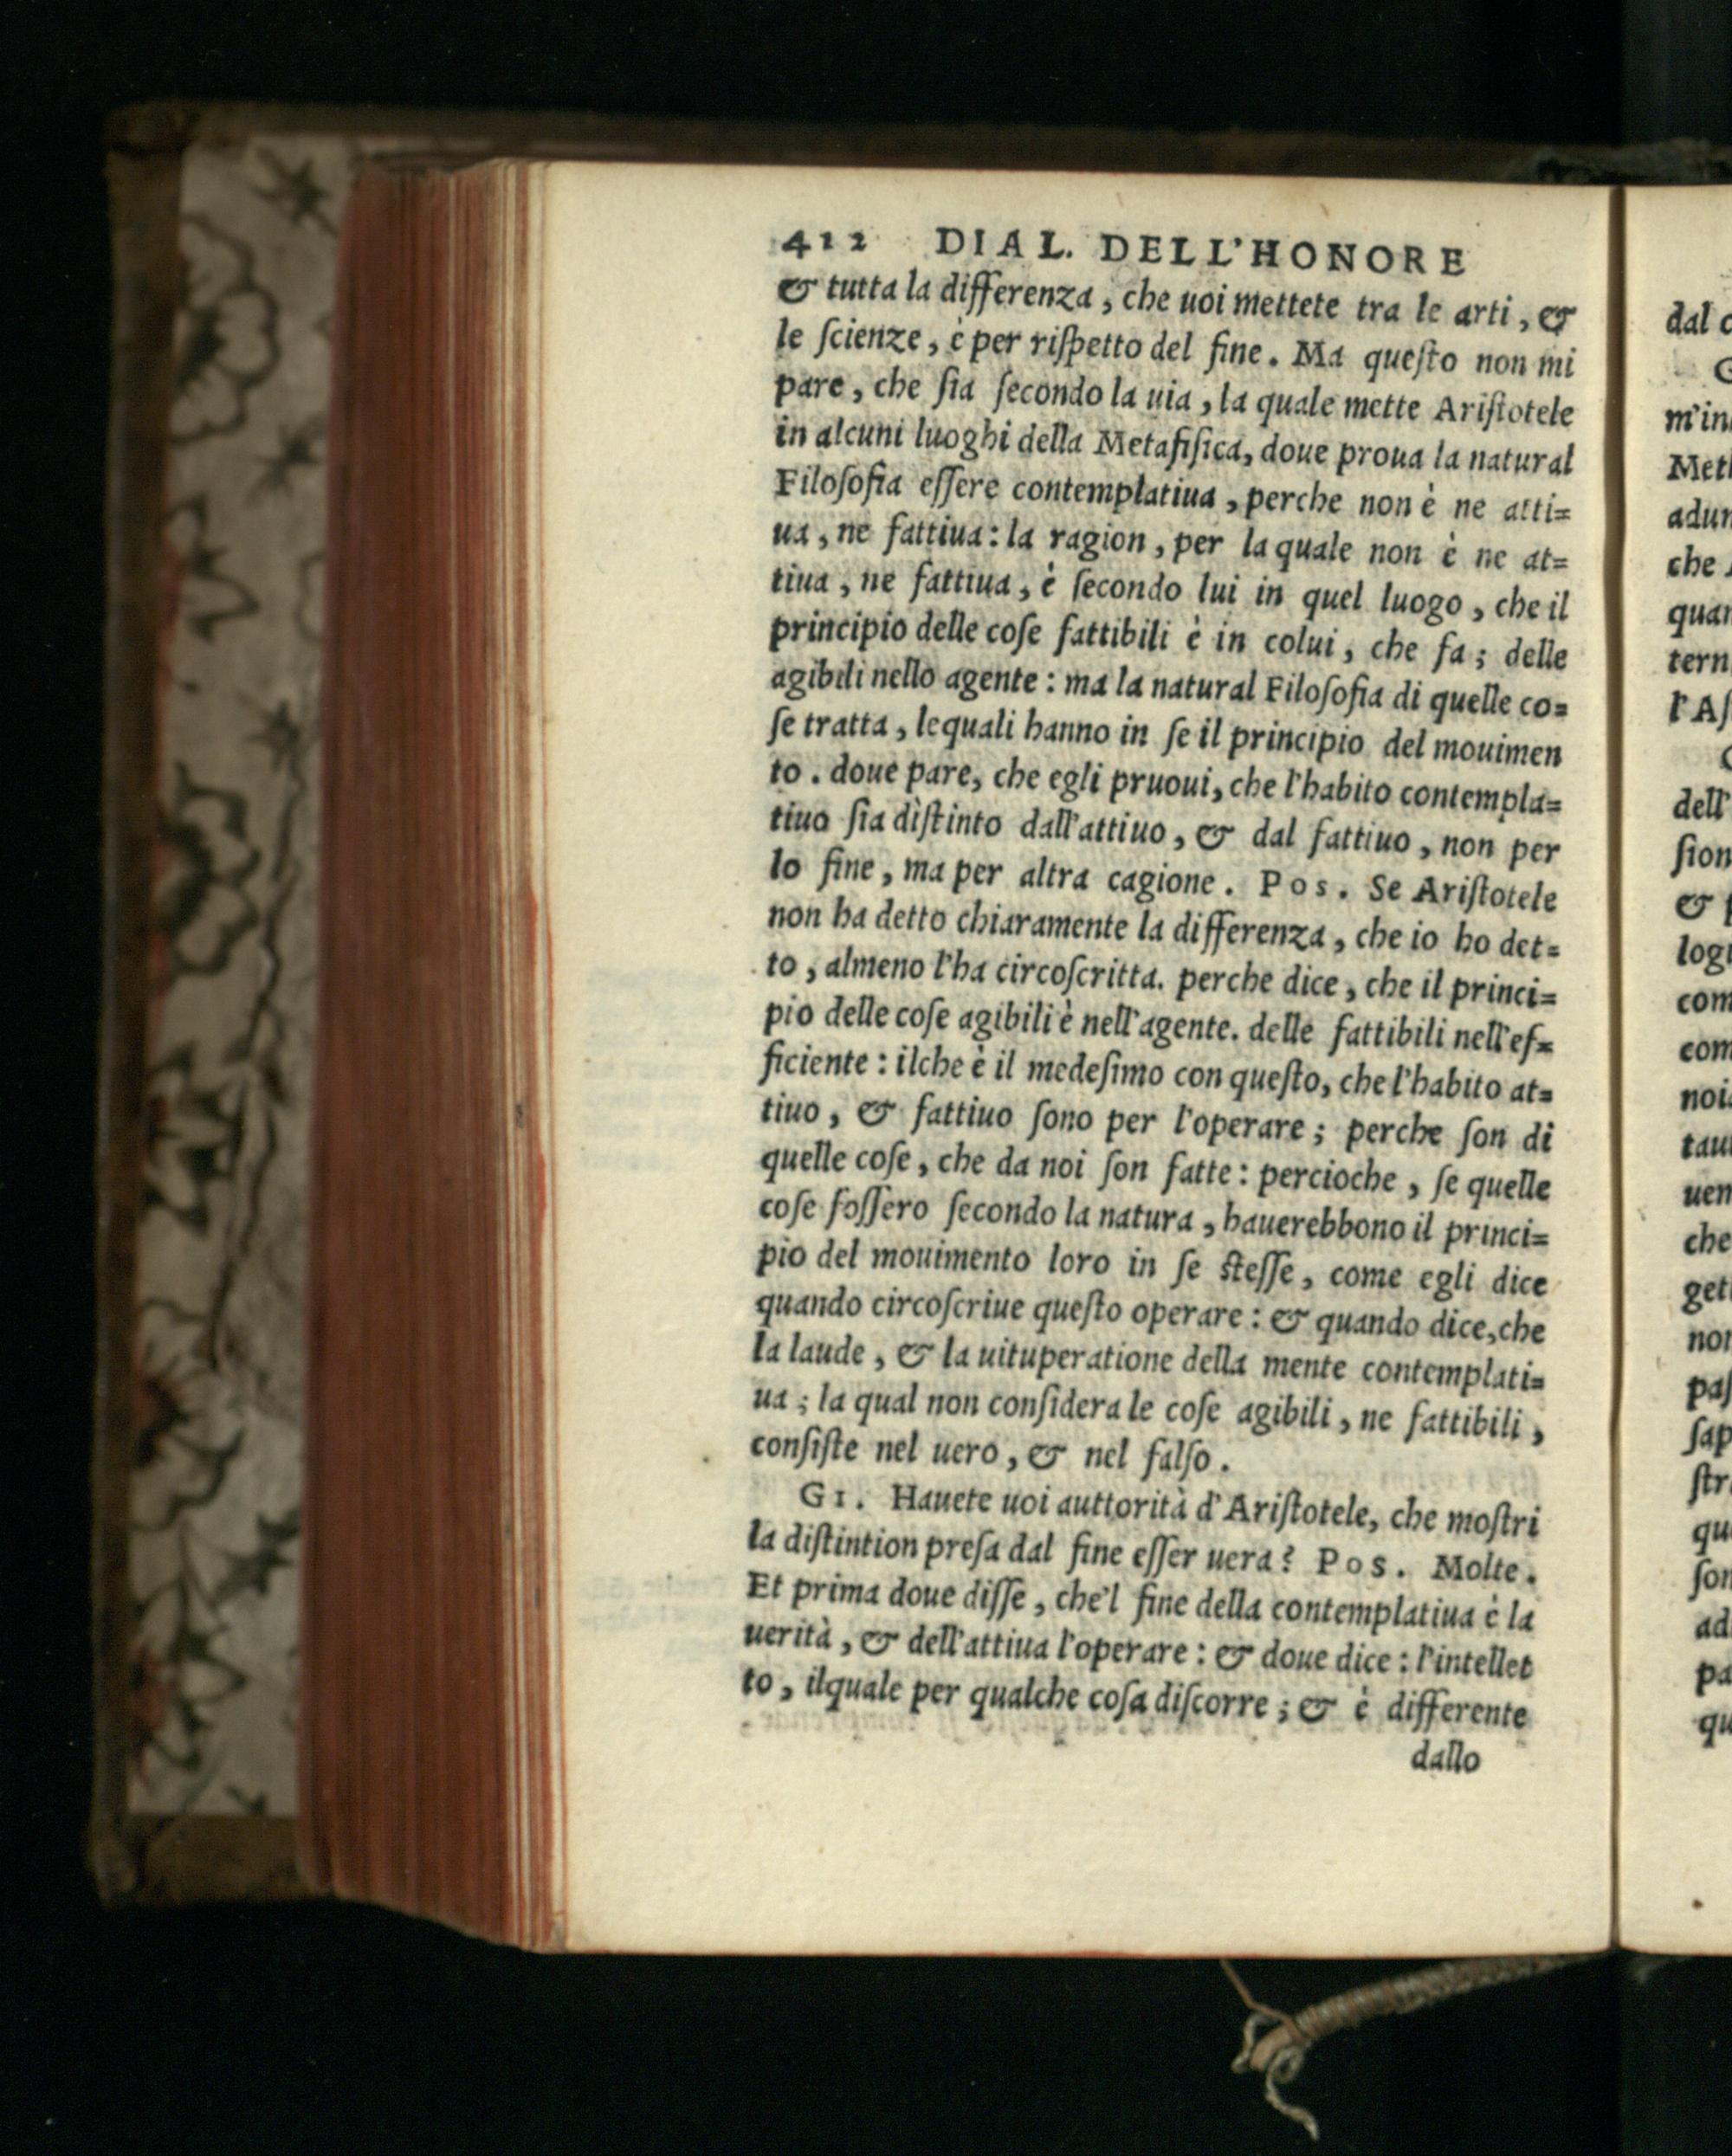 412 DIAL. DELL'HONORE
& tutta la differenza, che uoi mettete tra le arti, &
le ſcienze, è per riſpetto del fine. Ma queſto non mi
pare, che ſia ſecondo la uia, la quale mette Ariſtotele
in alcuni luoghi della Metafiſica, doue proua la natural
Filoſofia eſſere contemplatiua, perche non è ne atti=
ua, ne fattiua: la ragion, per la quale non è ne at=
tiua, ne fattiua, è ſecondo lui in quel luogo, che il
principio delle coſe fattibili è in colui, che fa; delle
agibili nello agente: ma la natural Filoſofia di quelle co=
ſe tratta, lequali hanno in ſe il principio del mouimen
to. doue pare, che egli pruoui, che l'habito contempla=
tiuo ſia diſtinto dall'attiuo, & dal fattiuo, non per
lo fine, ma per altra cagione. Pos. Se Ariſtotele
non ha detto chiaramente la differenza, che io ho det=
to, almeno l'ha circoſcritta. perche dice, che il princi=
pio delle coſe agibili è nell'agente. delle fattibili nell'ef=
ficiente: ilche è il medeſimo con queſto, che l'habito at=
tiuo, & fattiuo ſono per l'operare; perche ſon di
quelle coſe, che da noi ſon fatte: percioche, ſe quelle
coſe foſſero ſecondo la natura, hauerebbono il princi=
pio del mouimento loro in ſe ſteſſe, come egli dice
quando circoſcriue queſto operare: & quando dice, che
la laude, & la uituperatione della mente contemplati=
ua; la qual non conſidera le coſe agibili, ne fattibili,
conſiſte nel uero, & nel falſo.
GI. Hauete uoi auttorità d'Ariſtotele, che moſtri
la diſtintion preſa dal fine eſſer uera? Pos. Molte.
Et prima doue diſſe, che'l fine della contemplatiua è la
uerità, & dell'attiua l'operare: & doue dice: l'intellet
to, ilquale per qualche coſa diſcorre; & è differente
dallo
dal
m'in
Met
adun
che
quan
tern
l'Aſ
dell'
ſion
&
logi
com
com
noi
tau
uen
che
get
non
paſ
ſap
ſtr
qu
ſon
ad
pa
qu